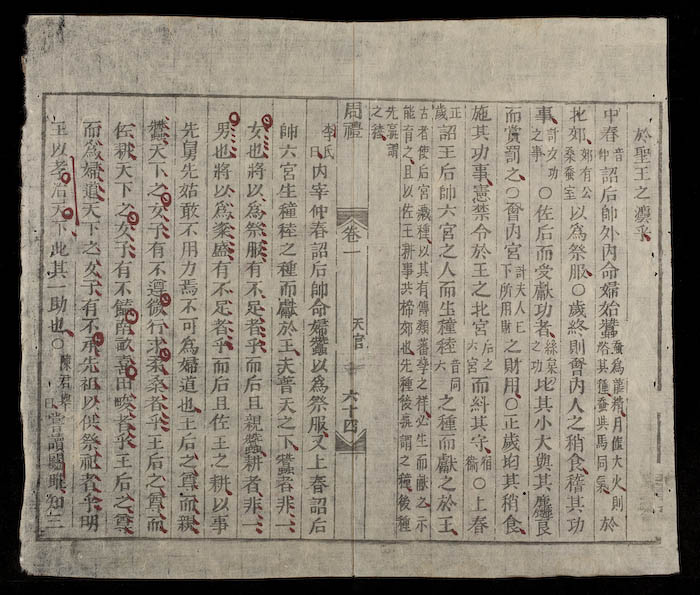 於聖王之灋乎
中春音仲詔后帥外內命婦始蠶蚕爲龍精月値大火則浴其種蚕與馬同氣於
北郊郊有公桑蚕室以為祭服○歲終則會內人之稍食稽其功
事計女功之事○佐后而受獻功者絲枲之功比其小大與其麤良
而賞罰之○會內宮計夫人已下所用財之財用○正歲均其稍食
施其功事憲禁令於王之北宮后之六宮而糾其守宿衞○上春
正歲詔王后帥六宮之人而生穜稑音同六之種而獻之於王
古者使后宮藏種以其有傳類蕃孳之祥必生而獻之示
能育之且以佐王耕事共禘郊也先種後熟謂之穜後種
先熟謂之稑
周禮 卷一 天官 六十四
李氏曰內宰仲春詔后帥命婦蠶以為祭服又上春詔后
帥六宮生穜稑之種而獻於王夫普天之下蠶者非一
女也將以為祭服有不足者乎而后且親蠶耕者非一
男也將以為粢盛有不足者乎而后且佐之耕以事
先舅先姑敢不用力焉不可為婦道也王后之尊而親
蠶天下之女子有不遵微行求柔桑者乎王后之尊而
佐耕天下之女子有不饁南畝喜田畯者乎王后之尊
而為婦道天下之女子有不承先祖以供祭祀者乎明
王以孝治天下此其一助也○陳君舉曰嘗讀關雎知三